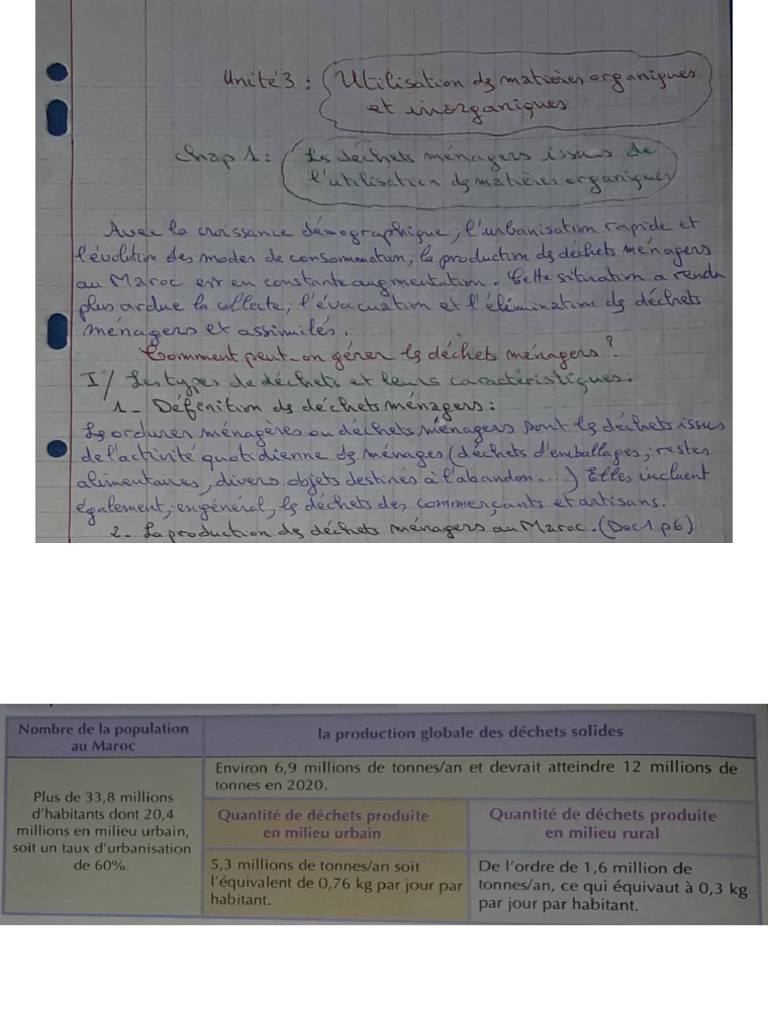 Unité 3 : Utilisation ds matières organiques
et inorganiques
Chap 1 : Ls déchets ménagers issues de
l'utilisation ds matières organiques
Avec la croissance démographique, l'urbanisation rapide et
l'évolution des modes de consommation, la production ds déchets ménagers
au Maroc est en constante augmentation. Cette situation a rendu
plus ardue la collecte, l'évacuation et l'élimination ds déchets
ménagers et assimilés.
Comment peut-on gérer ls déchets ménagers ?
I/ Les types de déchets et leurs caractéristiques :
1 - Défenition ds déchets ménagers :
Ls ordures ménagères ou déchets ménagers sont ls déchets issus
de l'activité quotidienne ds ménages (déchets d'emballages, restes
alimentaires, divers objets destinés à l'abandon...) Elles incluent
également, en général, ls déchets des commerçants et artisans.
2 - La production ds déchets ménagers au Maroc. (Doc1 p6)
Nombre de la population
au Maroc
la production globale des déchets solides
Plus de 33,8 millions
d'habitants dont 20,4
millions en milieu urbain,
soit un taux d'urbanisation
de 60%.
Environ 6,9 millions de tonnes/an et devrait atteindre 12 millions de
tonnes en 2020.
Quantité de déchets produite
en milieu urbain
Quantité de déchets produite
en milieu rural
5,3 millions de tonnes/an soit
l'équivalent de 0,76 kg par jour par
habitant.
De l'ordre de 1,6 million de
tonnes/an, ce qui équivaut à 0,3 kg
par jour par habitant.